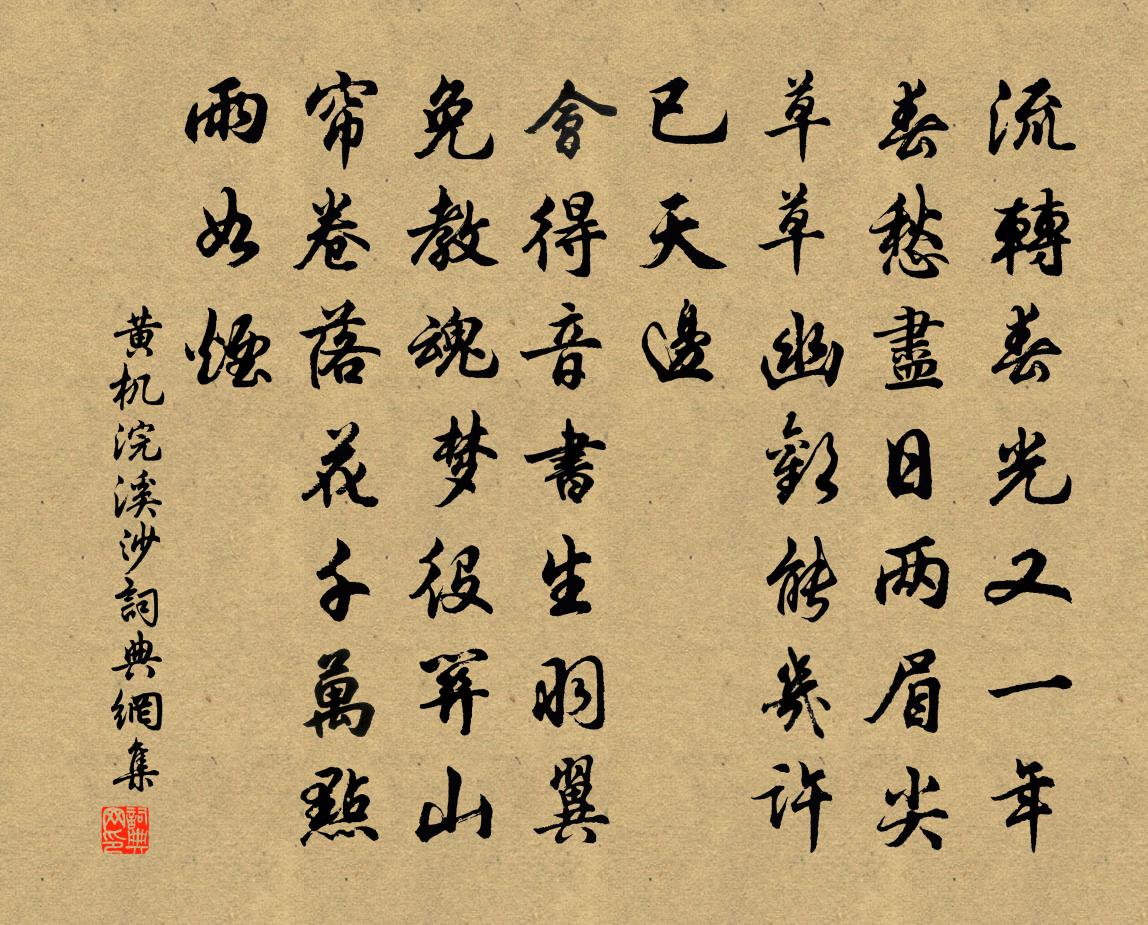 流轉春光又一年
春愁盡日两眉尖
草草幽歡能幾許
已天邊
會得音書生羽翼
免教魂梦役關山
帘卷落花千萬點
雨如煙
黄机浣溪沙詞典網集
詞典网印